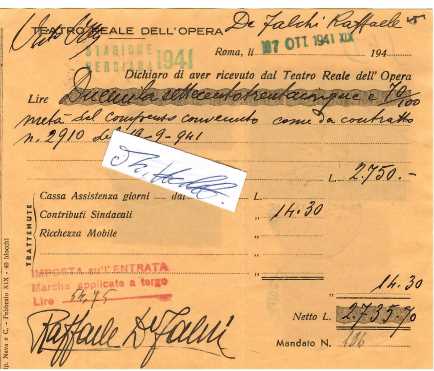 TEATRO REALE DELL'OPERA
De Falchi Raffaele
STAGIONE
BERGIANA 1941
Roma, li 07 OTT. 1941 XIX 194
Dichiaro di aver ricevuto dal Teatro Reale dell'Opera
Lire Duemila settecentotrentacinque e 70/100
metà del compenso convenuto come da contratto
n. 2910 del 9-941
L. 2.750.-
TRATTENUTE
Cassa Assistenza giorni dal L.
Contributi Sindacali " 14.30
Ricchezza Mobile "
IMPOSTA sull'ENTRATA
Marche applicate a tergo
Lire 54.75
" 14.30
Netto L. 2.735.70
Mandato N. 186
Raffaele De Falchi
Nava e C. - Febbraio XIX - 40 blocchi